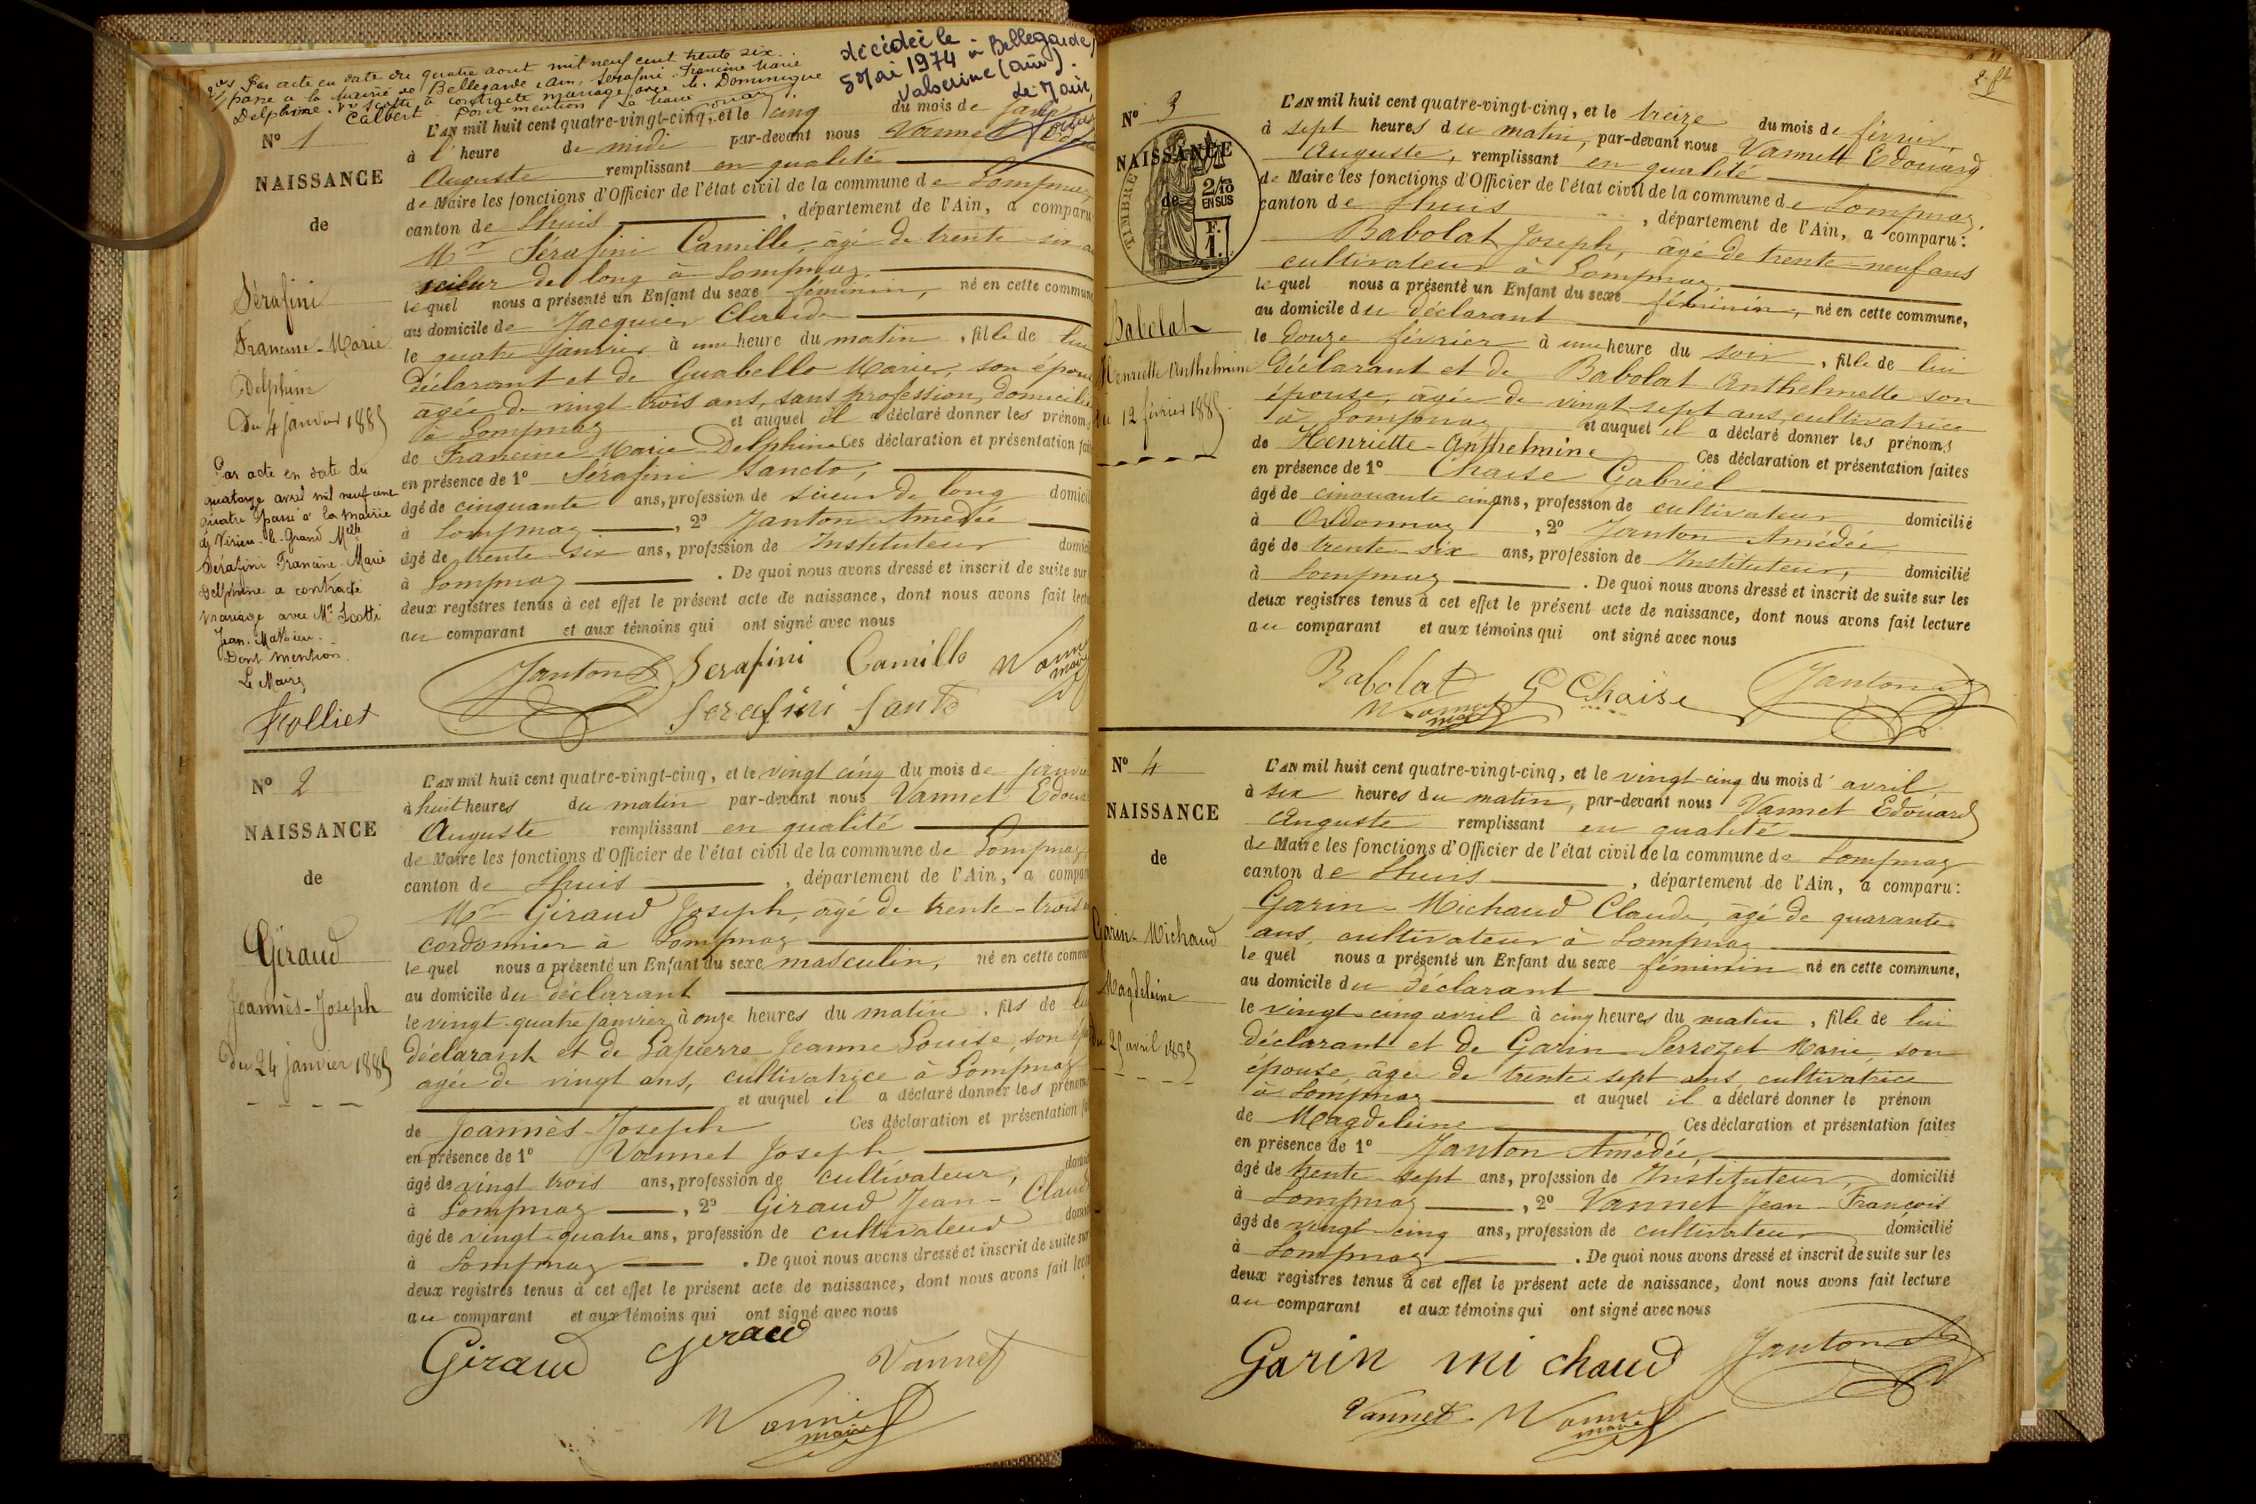 2º Par acte en date du quatre aout mil neuf cent trente six
passé à la mairie de Bellegarde Ain, Serafini Francine Marie
Delphine Vve Scotti a contracté mariage avec M. Dominique
Calbert. Dont mention Le Maire
décédée le
5 Mai 1974 à Bellegarde
Valserine (Ain).
Le Maire,
Nº 1
NAISSANCE
de
Sérafini
Francine-Marie
Delphine
Du 4 janvier 1885
Par acte en date du
quatorze avril mil neuf cent
quatre passé à la mairie
de Virieu-le-Grand Melle
Sérafini Francine-Marie
Delphine a contracté
mariage avec Mr Scotti
Jean-Mathieu.
Dont mention.
Le Maire
Folliet
L'AN mil huit cent quatre-vingt-cinq, et le cinq du mois de
à l'heure de midi par-devant nous Vannet
Auguste remplissant en qualité
de Maire les fonctions d'Officier de l'état civil de la commune de Lompnaz
canton de Lhuis, département de l'Ain, a comparu
Mr Sérafini Camille, âgé de trente-six
scieur de long à Lompnaz.
lequel nous a présenté un Enfant du sexe féminin, né en cette commune
au domicile de Jacquier Claude
le quatre janvier à une heure du matin, fille de lui
déclarant et de Guabello Marie, son épouse
âgée de vingt-trois ans, sans profession, domiciliée
à Lompnaz et auquel il a déclaré donner les prénoms
de Francine-Marie-Delphine Ces déclaration et présentation fai
en présence de 1º Sérafini Sancto,
âgé de cinquante ans, profession de scieur de long domici
à Lompnaz, 2º Janton Amédée
âgé de trente-six ans, profession de Instituteur domici
à Lompnaz. De quoi nous avons dressé et inscrit de suite sur
deux registres tenus à cet effet le présent acte de naissance, dont nous avons fait lectu
au comparant et aux témoins qui ont signé avec nous
Janton Serafini Camillo Vannet
maire
Serafini Santo
Nº 2
NAISSANCE
de
Giraud
Joannès-Joseph
du 24 janvier 1885
L'AN mil huit cent quatre-vingt-cinq, et le vingt cinq du mois de janvie
à huit heures du matin par-devant nous Vannet Edoua
Auguste remplissant en qualité
de Maire les fonctions d'Officier de l'état civil de la commune de Lompnaz
canton de Lhuis, département de l'Ain, a compar
Mr Giraud Joseph, âgé de trente-trois
cordonnier à Lompnaz
lequel nous a présenté un Enfant du sexe masculin, né en cette commun
au domicile du déclarant
le vingt-quatre janvier à onze heures du matin, fils de lui
déclarant et de Lapierre Jeanne Louise, son épo
âgée de vingt ans, cultivatrice à Lompnaz
et auquel il a déclaré donner les prénoms
de Joannès-Joseph Ces déclaration et présentation fa
en présence de 1º Vannet Joseph
âgé de vingt trois ans, profession de cultivateur, domici
à Lompnaz, 2º Giraud Jean-Claude
âgé de vingt-quatre ans, profession de cultivateur domici
à Lompnaz. De quoi nous avons dressé et inscrit de suite sur
deux registres tenus à cet effet le présent acte de naissance, dont nous avons fait lectu
au comparant et aux témoins qui ont signé avec nous
Giraud Giraud Vannet
Vannet
maire
2 ft
Nº 3
NAISSANCE
de
TIMBRE
2/10
EN SUS
F.
1.
Babolat
Henriette Anthelmine
Du 12 février 1885
L'AN mil huit cent quatre-vingt-cinq, et le treize du mois de février,
à sept heures du matin, par-devant nous Vannet Edouard
Auguste, remplissant en qualité
de Maire les fonctions d'Officier de l'état civil de la commune de Lompnaz,
canton de Lhuis, département de l'Ain, a comparu:
Babolat Joseph, âgé de trente-neuf ans
cultivateur à Lompnaz,
lequel nous a présenté un Enfant du sexe féminin, né en cette commune,
au domicile du déclarant
le douze février à une heure du soir, fille de lui
déclarant et de Babolat Anthelmette son
épouse, âgée de vingt-sept ans, cultivatrice
à Lompnaz et auquel il a déclaré donner les prénoms
de Henriette-Anthelmine Ces déclaration et présentation faites
en présence de 1º Chaise Gabriel
âgé de cinquante cinq ans, profession de cultivateur domicilié
à Ordonnaz, 2º Janton Amédée
âgé de trente-six ans, profession de Instituteur, domicilié
à Lompnaz. De quoi nous avons dressé et inscrit de suite sur les
deux registres tenus à cet effet le présent acte de naissance, dont nous avons fait lecture
au comparant et aux témoins qui ont signé avec nous
Babolat G Chaise Janton
Vannet
maire
Nº 4
NAISSANCE
de
Garin-Michaud
Magdeleine
Du 25 avril 1885
L'AN mil huit cent quatre-vingt-cinq, et le vingt-cinq du mois d'avril,
à six heures du matin, par-devant nous Vannet Edouard
Auguste remplissant en qualité
de Maire les fonctions d'Officier de l'état civil de la commune de Lompnaz
canton de Lhuis, département de l'Ain, a comparu:
Garin-Michaud Claude, âgé de quarante
ans, cultivateur à Lompnaz
lequel nous a présenté un Enfant du sexe féminin né en cette commune,
au domicile du déclarant
le vingt-cinq avril à cinq heures du matin, fille de lui
déclarant et de Garin Serrozet Marie, son
épouse âgée de trente sept ans cultivatrice
à Lompnaz et auquel il a déclaré donner le prénom
de Magdeleine Ces déclaration et présentation faites
en présence de 1º Janton Amédée,
âgé de trente-sept ans, profession de Instituteur, domicilié
à Lompnaz, 2º Vannet Jean-François
âgé de vingt-cinq ans, profession de cultivateur domicilié
à Lompnaz. De quoi nous avons dressé et inscrit de suite sur les
deux registres tenus à cet effet le présent acte de naissance, dont nous avons fait lecture
au comparant et aux témoins qui ont signé avec nous
Garin michaud Janton
Vannet Vannet
maire